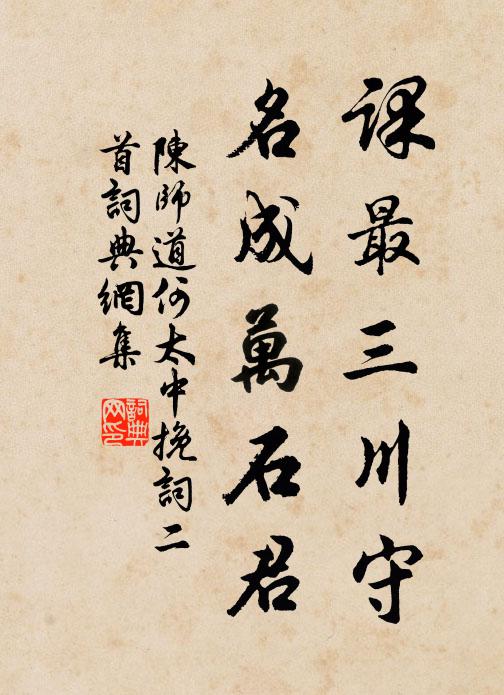 課最三川守
名成萬石君
陳師道何太中挽詞二
首詞典網集
詞典
网印